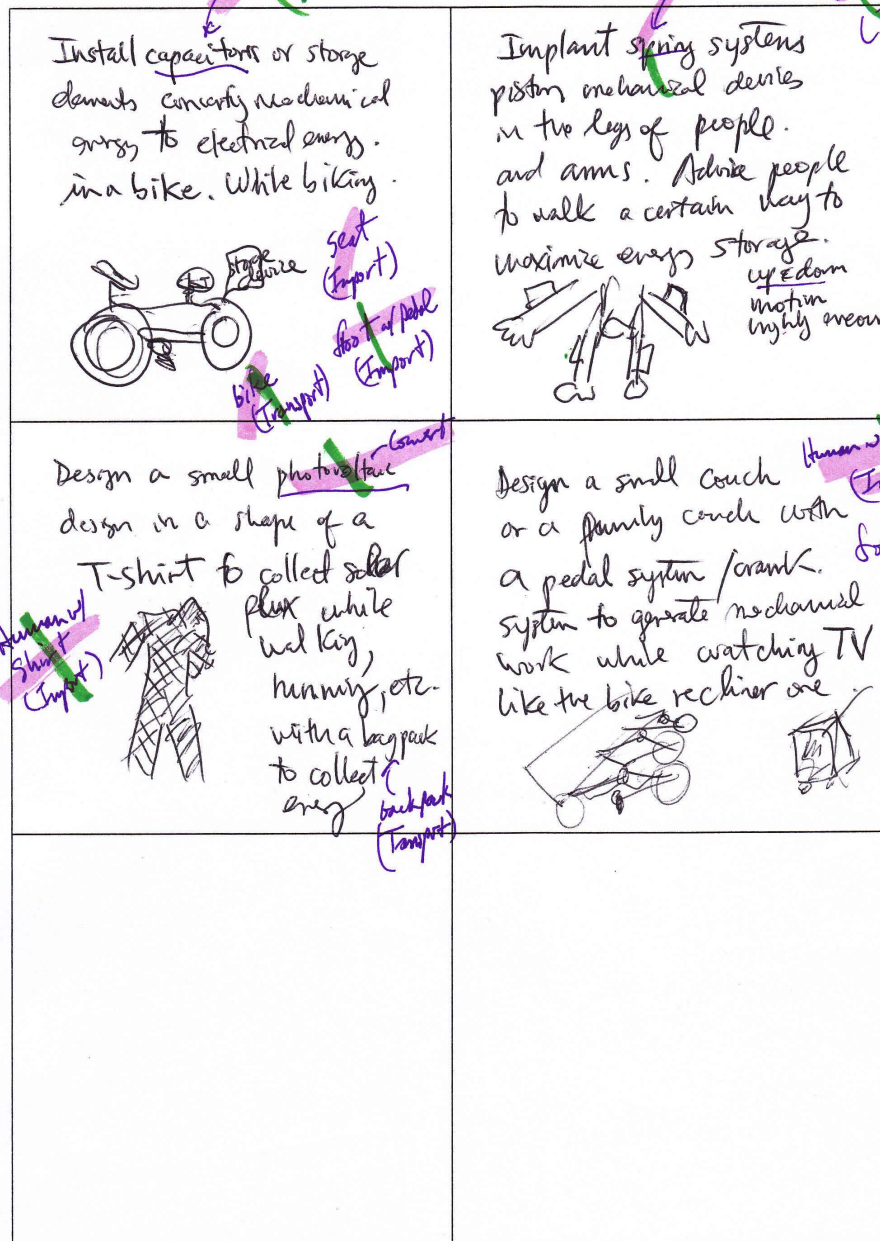 Install capacitors or storge
elements converting mechanical
energy to electrical energy.
in a bike. While biking.
storge
device
seat
(Import)
foot w/ pedal
(Import)
bike
(Transport)
Implant spring systems
piston mechanical devices
in the legs of people.
and arms. Advise people
to walk a certain way to
maximize energy storage.
up & down
motion
highly
Convert
Design a small photovoltaic
design in a shape of a
T-shirt to collect solar
flux while
walking,
running, etc.
with a bagpack
to collect
energy
backpack
(Transport)
Human w/
Shirt
(Import)
Human w/
Design a small couch
or a family couch with
a pedal system /crank.
system to generate mechanical
work while watching TV
like the bike recliner one.